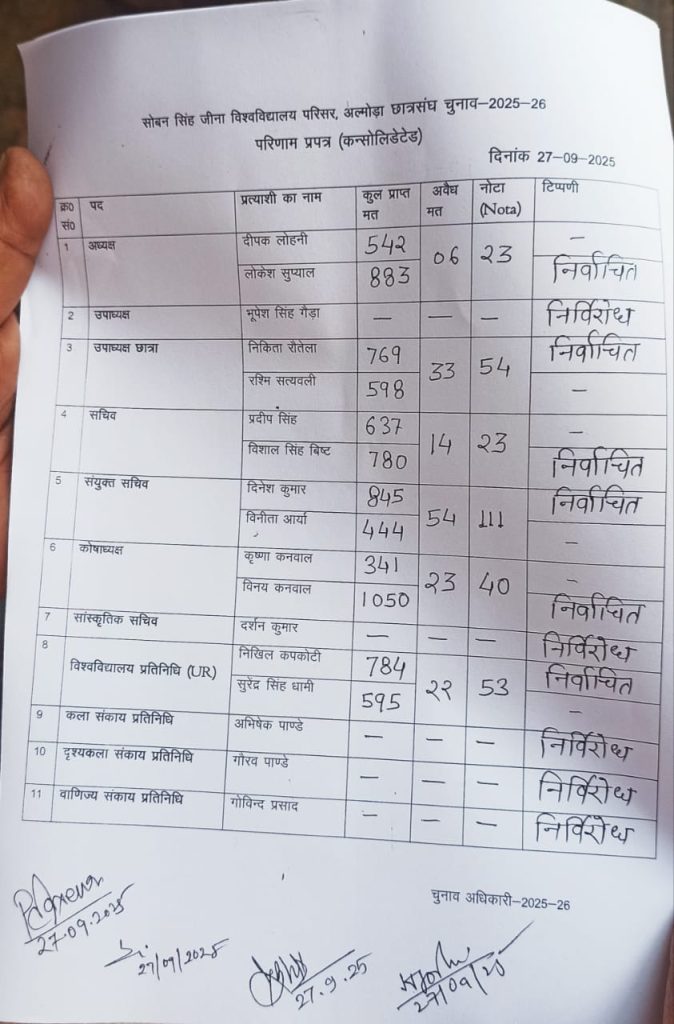 सोबन सिंह जीना विश्वविद्यालय परिसर, अल्मोड़ा छात्रसंघ चुनाव–2025-26
परिणाम प्रपत्र (कन्सोलिडेटेड)
दिनांक 27-09-2025
क्र0 सं0 पद प्रत्याशी का नाम कुल प्राप्त मत अवैध मत नोटा (Nota) टिप्पणी
1 अध्यक्ष दीपक लोहनी 542 06 23 –
लोकेश सुप्याल 883 निर्वाचित
2 उपाध्यक्ष भूपेश सिंह गैड़ा – – – निर्विरोध
3 उपाध्यक्ष छात्रा निकिता रौतेला 769 33 54 निर्वाचित
रश्मि सत्यवली 598 –
4 सचिव प्रदीप सिंह 637 14 23 –
विशाल सिंह बिष्ट 780 निर्वाचित
5 संयुक्त सचिव दिनेश कुमार 845 54 111 निर्वाचित
विनीता आर्या 444 –
6 कोषाध्यक्ष कृष्णा कनवाल 341 23 40 –
विनय कनवाल 1050 निर्वाचित
7 सांस्कृतिक सचिव दर्शन कुमार – – – निर्विरोध
8 विश्वविद्यालय प्रतिनिधि (UR) निखिल कपकोटी 784 22 53 निर्वाचित
सुरेद्र सिंह धामी 595 –
9 कला संकाय प्रतिनिधि अभिषेक पाण्डे – – – निर्विरोध
10 दृश्यकला संकाय प्रतिनिधि गौरव पाण्डे – – – निर्विरोध
11 वाणिज्य संकाय प्रतिनिधि गोविन्द प्रसाद – – – निर्विरोध
चुनाव अधिकारी–2025-26
27-09-2025
27/09/2025
27.9.25
27/09/25